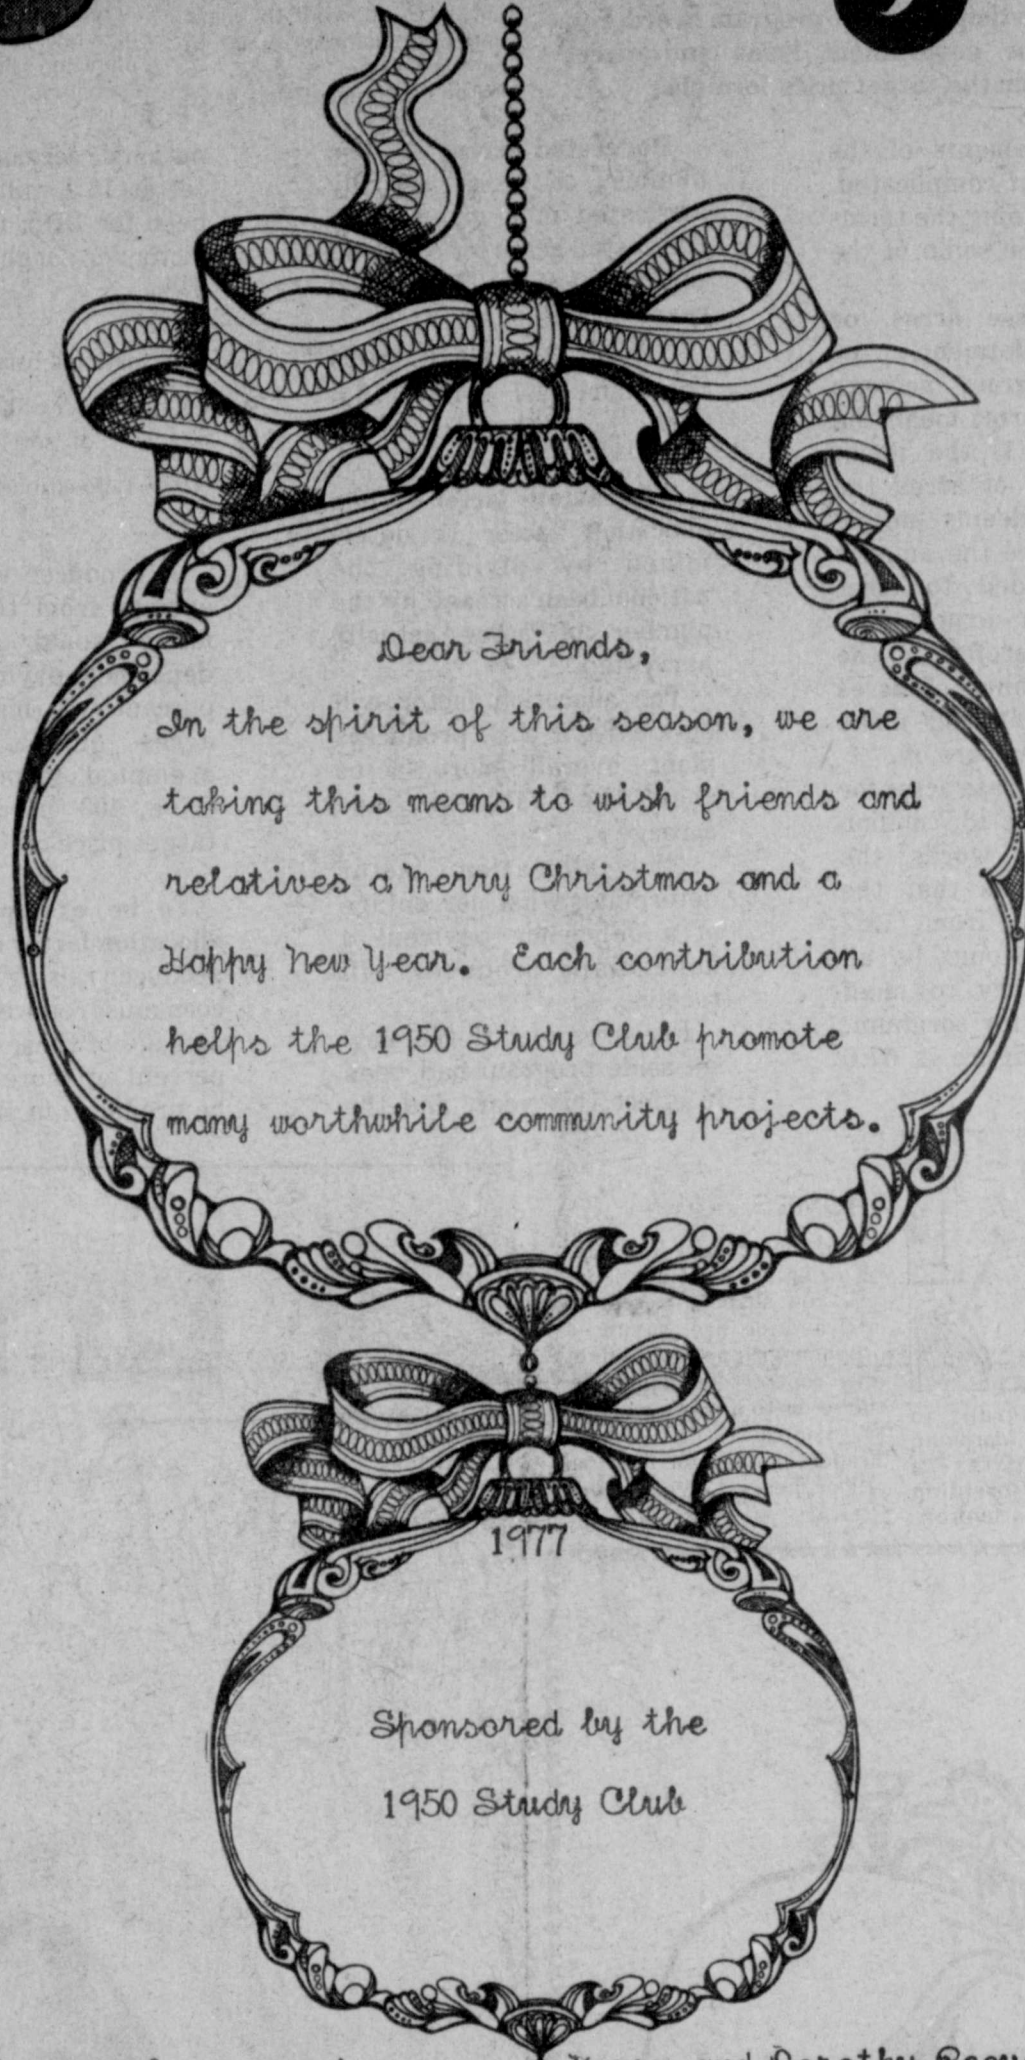 Dear Friends,
In the spirit of this season, we are
taking this means to wish friends and
relatives a Merry Christmas and a
Happy New Year. Each contribution
helps the 1950 Study Club promote
many worthwhile community projects.
1977
Sponsored by the
1950 Study Club
and Dorothy